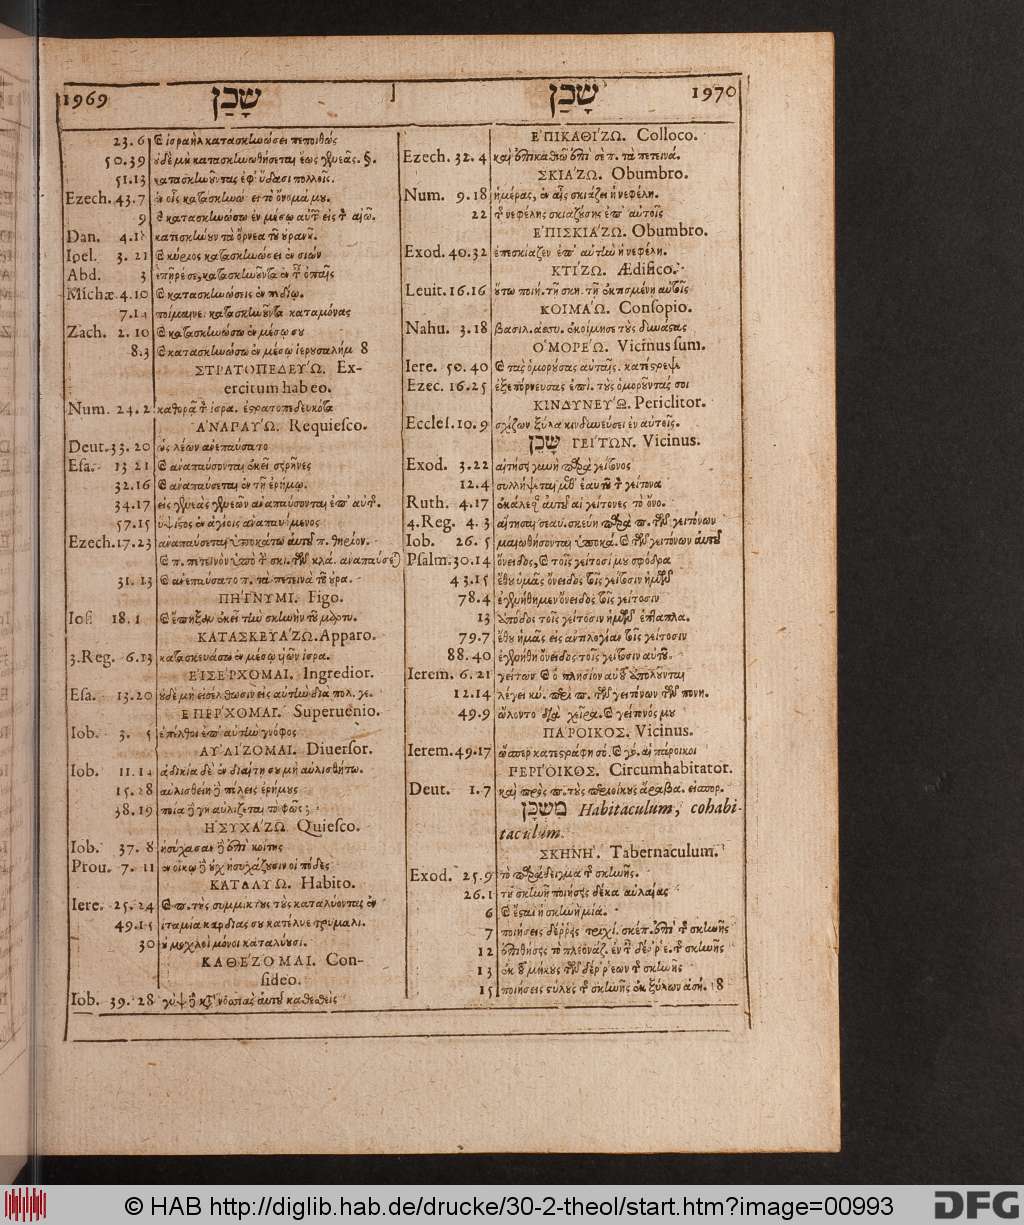 1969 שָׁכַן
שָׁכַן 1970
23.6 ἰσραὴλ κατασκηνώσει πεποιθώς
50.39 οὐδὲ μὴ κατασκηνωθήσεται ἕως γενεᾶς. §.
51.13 κατασκηνοῦντας ἐφ' ὕδασι πολλοῖς.
Ezech. 43.7 ἐν οἷς κατασκηνώσει τὸ ὄνομά μου.
9 καὶ κατασκηνώσω ἐν μέσῳ αὐτῶν εἰς τ αἰῶ.
Dan. 4.18 κατεσκήνουν τὰ ὄρνεα τοῦ οὐρανοῦ.
Ioel. 3. 21 καὶ κύριος κατασκηνώσει ἐν σιών
Abd. 3 ἐπῆρέ σε, κατασκηνοῦντα ἐν τ ὀπαῖς
Michæ. 4.10 καὶ κατασκηνώσεις ἐν πεδίῳ.
7.14 ποίμαινε κατασκηνοῦντα καταμόνας
Zach. 2. 10 καὶ κατασκηνώσω ἐν μέσῳ σου
8.3 καὶ κατασκηνώσω ἐν μέσῳ ἱερουσαλήμ 8
ΣΤΡΑΤΟΠΕΔΕΥΏ. Ex-
ercitum habeo.
Num. 24.2 καθορᾷ τ ἰσρα. ἐστρατοπεδευκότα
ἈΝΑΠΑΎΩ. Requiesco.
Deut. 33. 20 ὡς λέων ἀνεπαύσατο
Esa. 13 21 καὶ ἀναπαύσονται ἐκεῖ σειρῆνες
32.16 καὶ ἀναπαύσεται ἐν τῇ ἐρήμῳ.
34.17 εἰς γενεὰς γενεῶν ἀναπαύσονται ἐπ' αὐτ.
57.15 ὕψιστος ἐν ἁγίοις ἀναπαυόμενος
Ezech. 17.23 ἀναπαύσεται ὑποκάτω αὐτοῦ π. θηρίον.
καὶ π. πετεινὸν ὑπὸ τ σκι. τῶν κλά. ἀναπαύσε
31. 13 καὶ ἀνεπαύσατο π. τὰ πετεινὰ τοῦ οὐρα.
ΠΗΓΝΥΜΙ. Figo.
Ios 18. 1 καὶ ἔπηξαν ἐκεῖ τὴν σκηνὴν τοῦ μαρτυ.
ΚΑΤΑΣΚΕΥΆΖΩ. Apparo.
3.Reg. 6.13 κατασκευάσω ἐν μέσῳ υἱῶν ἰσρα.
ἘΙΣΈΡΧΟΜΑΙ. Ingredior.
Esa. 13.20 οὐδὲ μὴ εἰσέλθωσιν εἰς αὐτὴν διὰ πολ. γε.
ἘΠΈΡΧΟΜΑΙ. Superuenio.
Iob. 3. 5 ἐπέλθοι ἐπ' αὐτὴν γνόφος
ἈΥΛΊΖΟΜΑΙ. Diuersor.
Iob. 11.14 ἀδικία δὲ ἐν διαίτῃ σου μὴ αὐλισθήτω.
15.28 αὐλισθείη δὲ πόλεις ἐρήμους
38.19 ποία δὲ γῆ αὐλίζεται τὸ φῶς;
ἩΣΥΧΆΖΩ. Quiesco.
Iob. 37. 8 ἡσύχασαν δὲ ἐπὶ κοίτης
Prou. 7. 11 ἐν οἴκῳ δὲ οὐχ ἡσυχάζουσιν οἱ πόδες
ΚΑΤΑΛΎΩ. Habito.
Iere. 25.24 καὶ π. τοὺς συμμίκτους τοὺς καταλύοντας ἐν
49.15 ἰταμία καρδίας σου κατέλυε τρυμαλι.
30 οὐ μοχλοὶ μόνοι καταλύουσι.
ΚΑΘΈΖΟΜΑΙ. Con-
sideo.
Iob. 39. 28 γὺψ δὲ νοσσιᾶς αὐτοῦ καθεσθεὶς
ἘΠΙΚΑΘΊΖΩ. Colloco.
Ezech. 32. 4 καὶ ἐπικαθιῶ ἐπὶ σὲ π. τὰ πετεινά.
ΣΚΙΆΖΩ. Obumbro.
Num. 9.18 ἡμέρας, ἐν αἷς σκιάζει ἡ νεφέλη.
22 τ νεφέλης σκιαζούσης ἐπ' αὐτοῖς
ἘΠΙΣΚΙΆΖΩ. Obumbro.
Exod. 40.32 ἐπεσκίαζεν ἐπ' αὐτὴν ἡ νεφέλη.
ΚΤΊΖΩ. Ædifico.
Leuit. 16.16 οὕτω ποιή. τῇ σκη. τῇ ἐκτισμένῃ αὐτοῖς
ΚΟΙΜΆΩ. Consopio.
Nahu. 3.18 βασιλ. ἀσσυ. ἐκοίμησε τοὺς δυνάστας
ὉΜΟΡΈΩ. Vicinus sum.
Iere. 50. 40 καὶ τὰς ὁμορούσας αὐταῖς. κατέστρεψε
Ezec. 16.25 ἐξεπόρνευσας ἐπὶ. τοὺς ὁμοροῦντάς σοι
ΚΙΝΔΥΝΕΎΩ. Periclitor.
Eccles. 10. 9 σχίζων ξύλα κινδυνεύσει ἐν αὐτοῖς.
שָׁכֵן ΓΕΊΤΩΝ. Vicinus.
Exod. 3.22 αἰτήσει γυνὴ παρὰ γείτονος
12.4 συλλήψεται μεθ' ἑαυτοῦ τ γείτονα
Ruth. 4.17 ἐκάλεσαν αὐτοῦ αἱ γείτονες τὸ ὄνο.
4.Reg. 4. 3 αἴτησαι σεαυ. σκεύη παρὰ π. τῶν γειτόνων
Iob. 26. 5 μαιωθήσονται ὑποκά. καὶ τῶν γειτόνων αὐτῶν
Psalm. 30.14 ὄνειδος, καὶ τοῖς γείτοσί μου σφόδρα
43.15 ἔθου ὑμᾶς ὄνειδος τοῖς γείτοσιν ἡμῶν
78.4 ἐγενήθημεν ὄνειδος τοῖς γείτοσιν
13 ἀπόδος τοῖς γείτοσιν ἡμῶν ἑπταπλα.
79.7 ἔθου ἡμᾶς εἰς ἀντιλογίαν τοῖς γείτοσιν
88. 40 ἐγενήθη ὄνειδος τοῖς γείτοσιν αὐτοῦ.
Ierem. 6. 21 γείτων καὶ ὁ πλησίον αὐτοῦ ἀπολοῦνται
12.14 λέγει κύ. περὶ π. τῶν γειτόνων τῶν πονη.
49.9 ὤλοντο διὰ χεῖρα. καὶ γείτονός μου
ΠΆΡΟΙΚΟΣ. Vicinus.
Ierem. 49.17 ὥσπερ κατεστράφη σό. καὶ γό. αἱ πάροικοι
ΠΕΡΊΟΙΚΟΣ. Circumhabitator.
Deut. 1.7 καὶ πρὸς π. τοὺς περιοίκους ἄραβα. εἰς τὸ ὄρ.
מִשְׁכָּן Habitaculum, cohabi-
taculum.
ΣΚΗΝΉ. Tabernaculum.
Exod. 25.9 τὸ παράδειγμα τ σκηνῆς.
26.1 τὴν σκηνὴν ποιήσεις δέκα αὐλαίας
6 καὶ ἔσται ἡ σκηνὴ μία.
7 ποιήσεις δέῤῥεις τριχί. σκέπ. ἐπὶ τ σκηνῆς
12 ὑποθήσεις τὸ πλεονάζ. ἐν τ δέῤῥε. τ σκηνῆς
13 ἐκ τοῦ μήκους τῶν δέῤῥεων τ σκηνῆς
15 ποιήσεις στύλους τ σκηνῆς ἐκ ξύλων ἀσή. 8
© HAB http://diglib.hab.de/drucke/30-2-theol/start.htm?image=00993
DFG